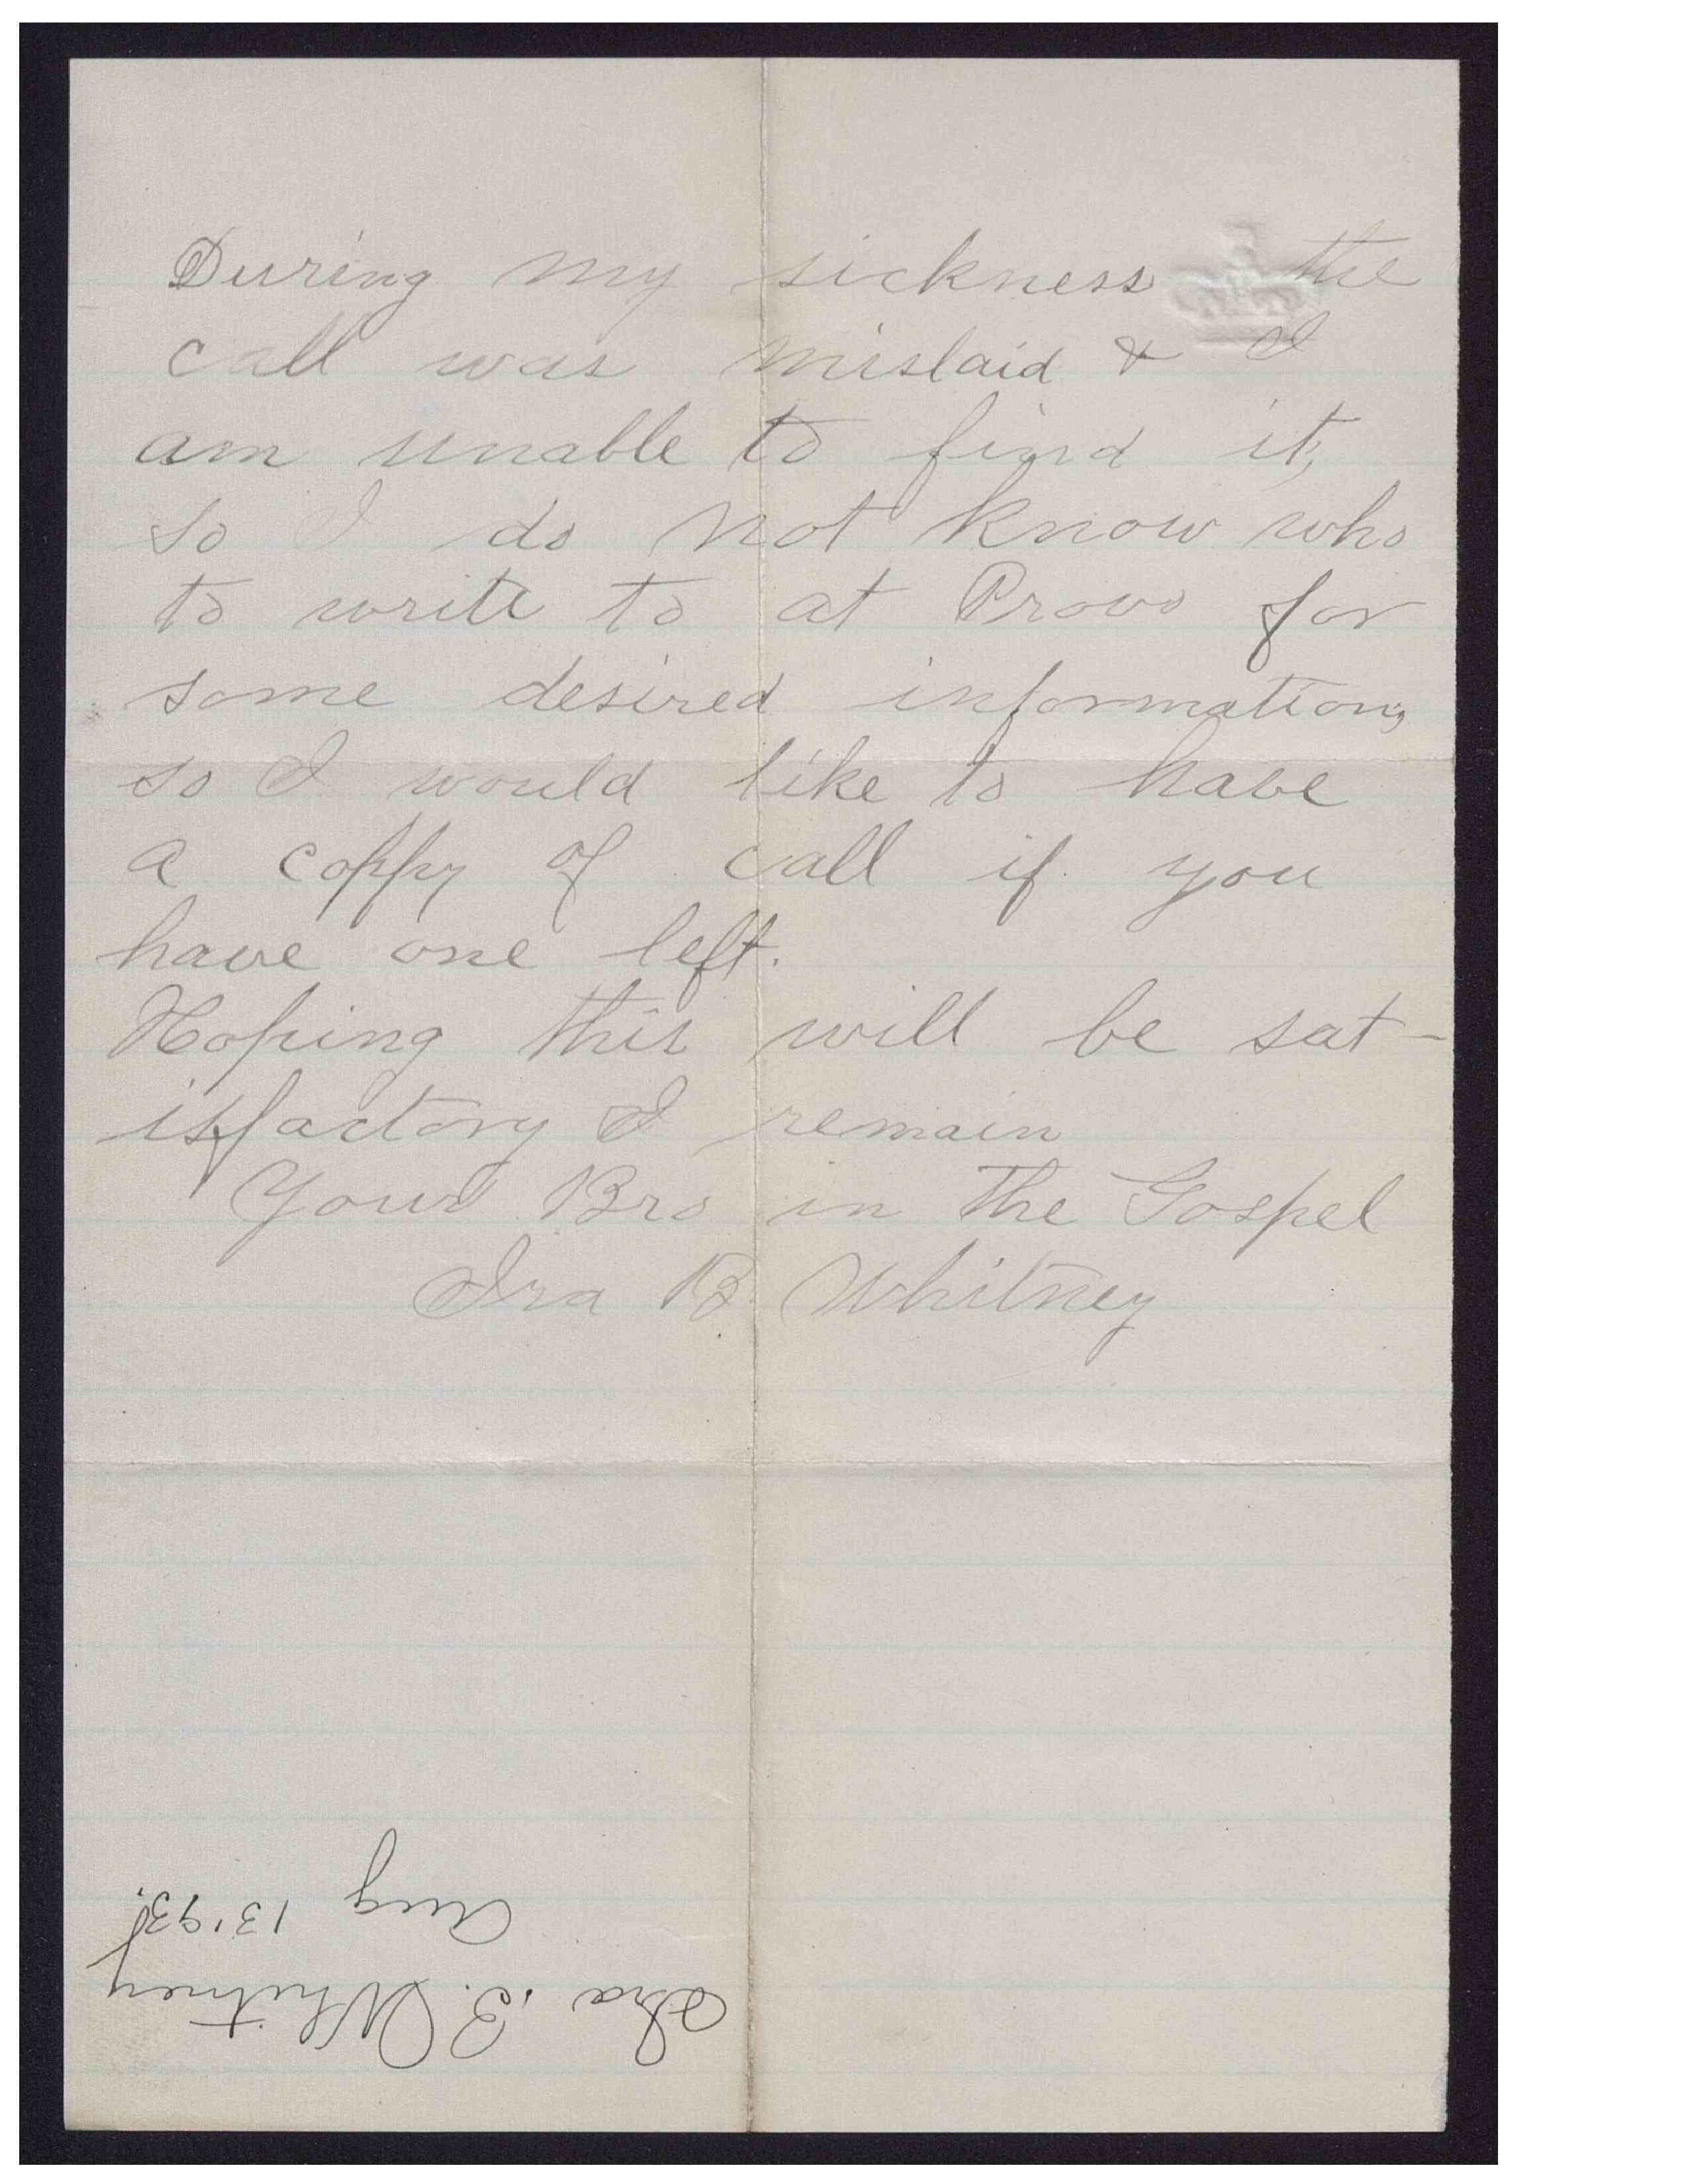 During my sickness the
call was mislaid & I
am unable to find it,
so I do not know who
to write to at Provo for
some desired information,
so I would like to have
a coppy of call if you
have one left.
Hoping this will be sat-
isfactory I remain
Your Bro in the Gospel
Ira B. Whitney
Ira B. Whitney
Aug 13 '93.